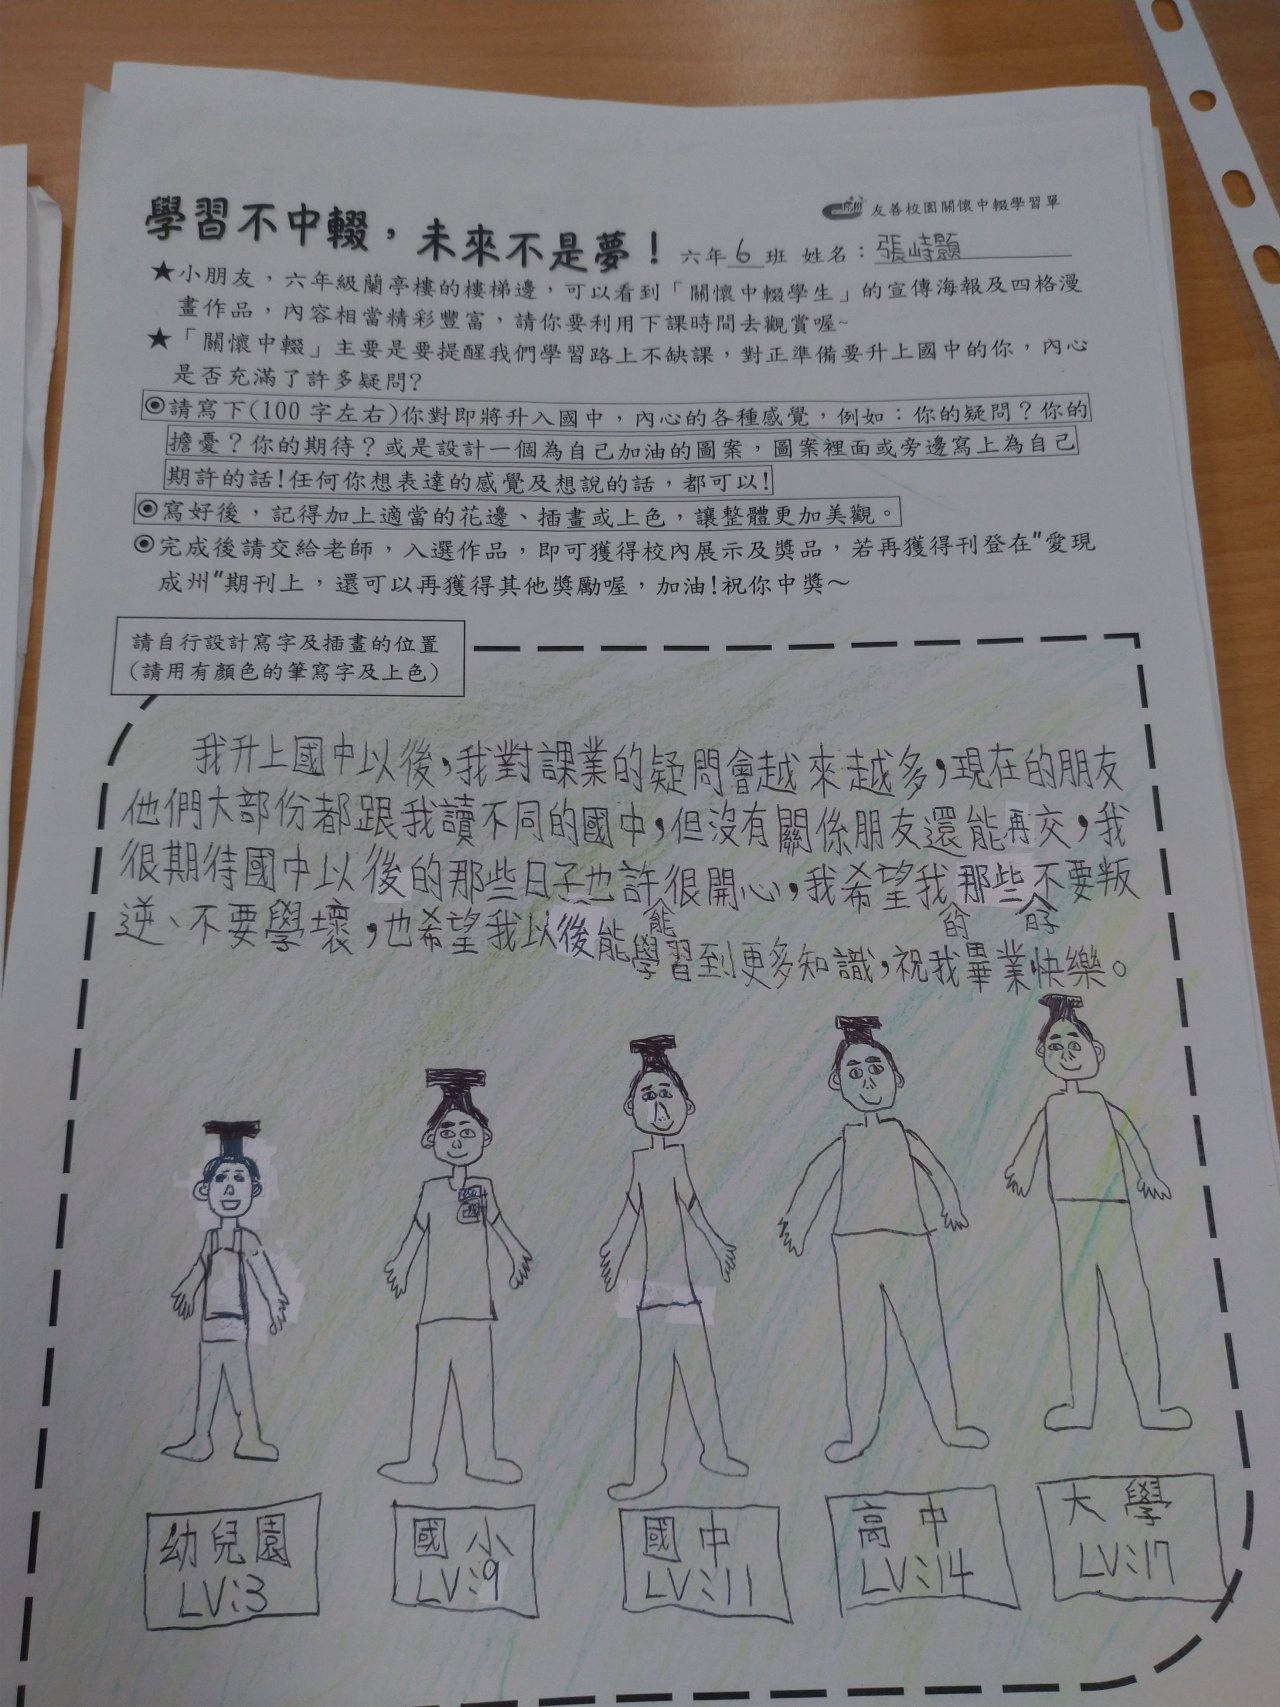 學習不中輟，未來不是夢！
友善校園關懷中輟學習單
六年6班 姓名：張峙顥
★小朋友，六年級蘭亭樓的樓梯邊，可以看到「關懷中輟學生」的宣傳海報及四格漫
畫作品，內容相當精彩豐富，請你要利用下課時間去觀賞喔~
★「關懷中輟」主要是要提醒我們學習路上不缺課，對正準備要升上國中的你，內心
是否充滿了許多疑問?
◉請寫下(100字左右)你對即將升入國中，內心的各種感覺，例如：你的疑問？你的
擔憂？你的期待？或是設計一個為自己加油的圖案，圖案裡面或旁邊寫上為自己
期許的話!任何你想表達的感覺及想說的話，都可以!
◉寫好後，記得加上適當的花邊、插畫或上色，讓整體更加美觀。
◉完成後請交給老師，入選作品，即可獲得校內展示及獎品，若再獲得刊登在"愛現
成州"期刊上，還可以再獲得其他獎勵喔，加油!祝你中獎～
請自行設計寫字及插畫的位置
(請用有顏色的筆寫字及上色)
我升上國中以後，我對課業的疑問會越來越多，現在的朋友
他們大部份都跟我讀不同的國中，但沒有關係朋友還能再交，我
很期待國中以後的那些日子也許很開心，我希望我的那些日子不要叛
逆、不要學壞，也希望我以後能能學習到更多知識，祝我畢業快樂。
幼兒園
LV:3
國小
LV:9
國中
LV:11
高中
LV:14
大學
LV:17